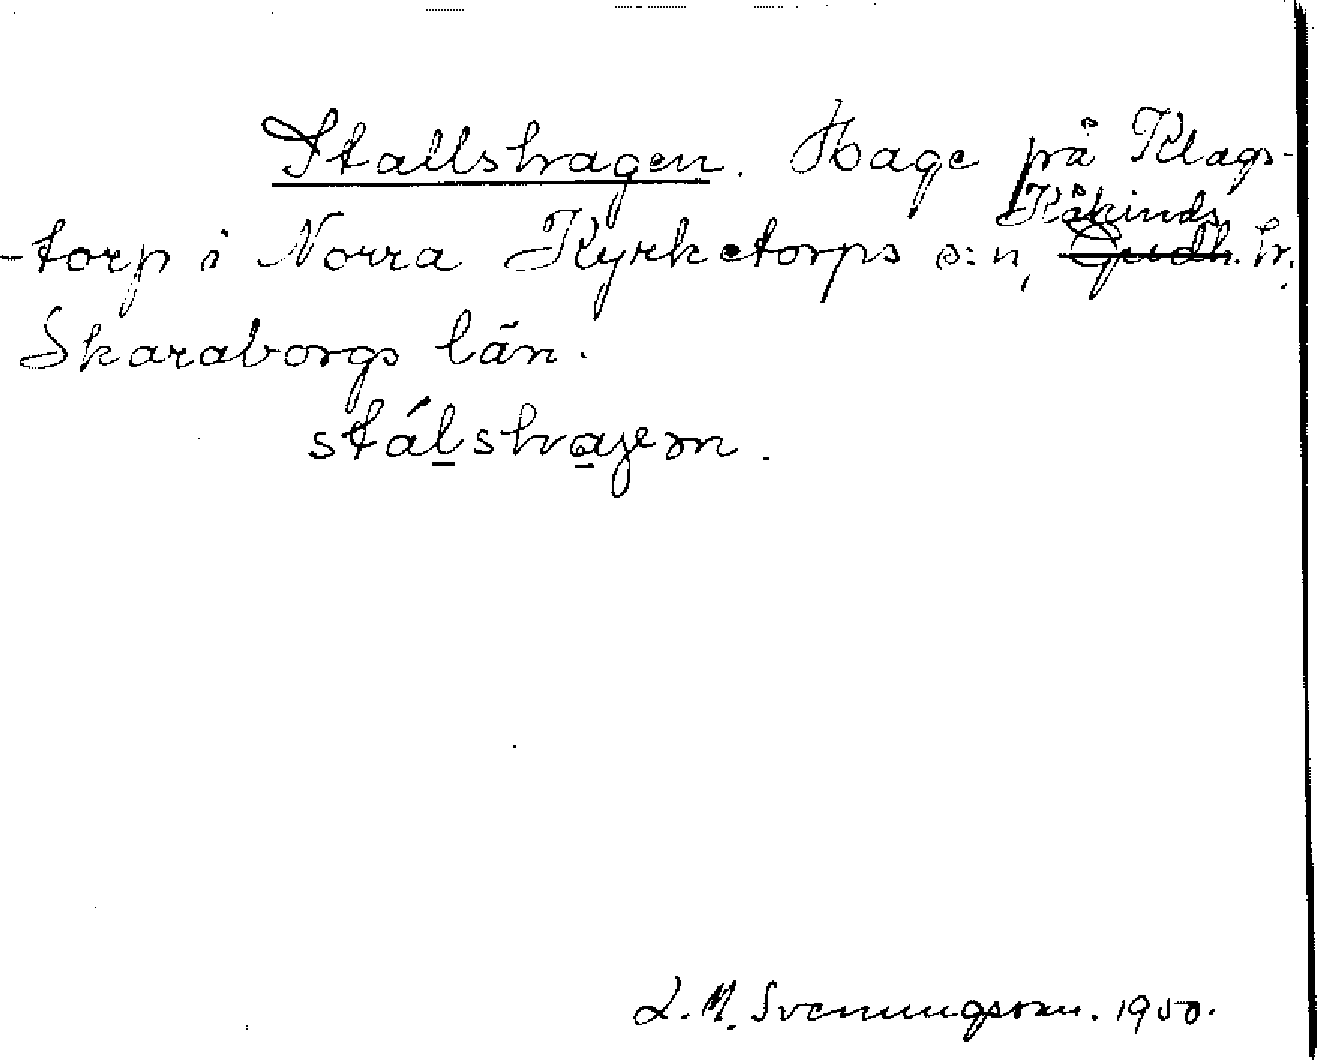 Stallshagen. Hage på Klags-
-torp i Norra Kyrketorps s:n, Kåkinds Gudh. hr.
Skaraborgs län.
stálshagen.
L. M. Svenungsson. 1950.